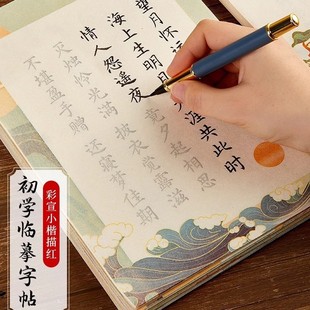 望月怀远
海上生明月天涯共此时
情人怨遥夜竟夕起相思
灭烛怜光满披衣觉露滋
不堪盈手赠还寝梦佳期
彩宣小楷描红
初学临摹字帖